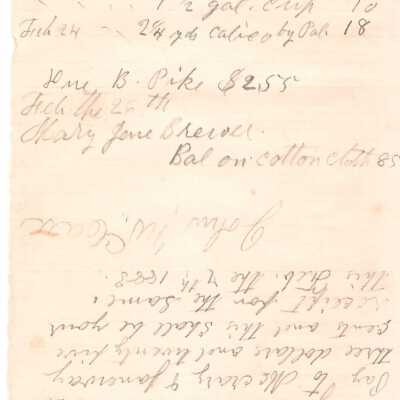 1 2 gal. cup 10
Feb 24 - 2 1/4 yds calico by Pal. 18
B. Pike $2.55
Feb. the 25 th
Mary Jane Brewer.
Bal on cotton cloth 85
Pay to McCrary & Janerway
three dollars and twenty five
cents and this shall be your
receipt for the same.
This Feb. the 7th, 1888.
John W.